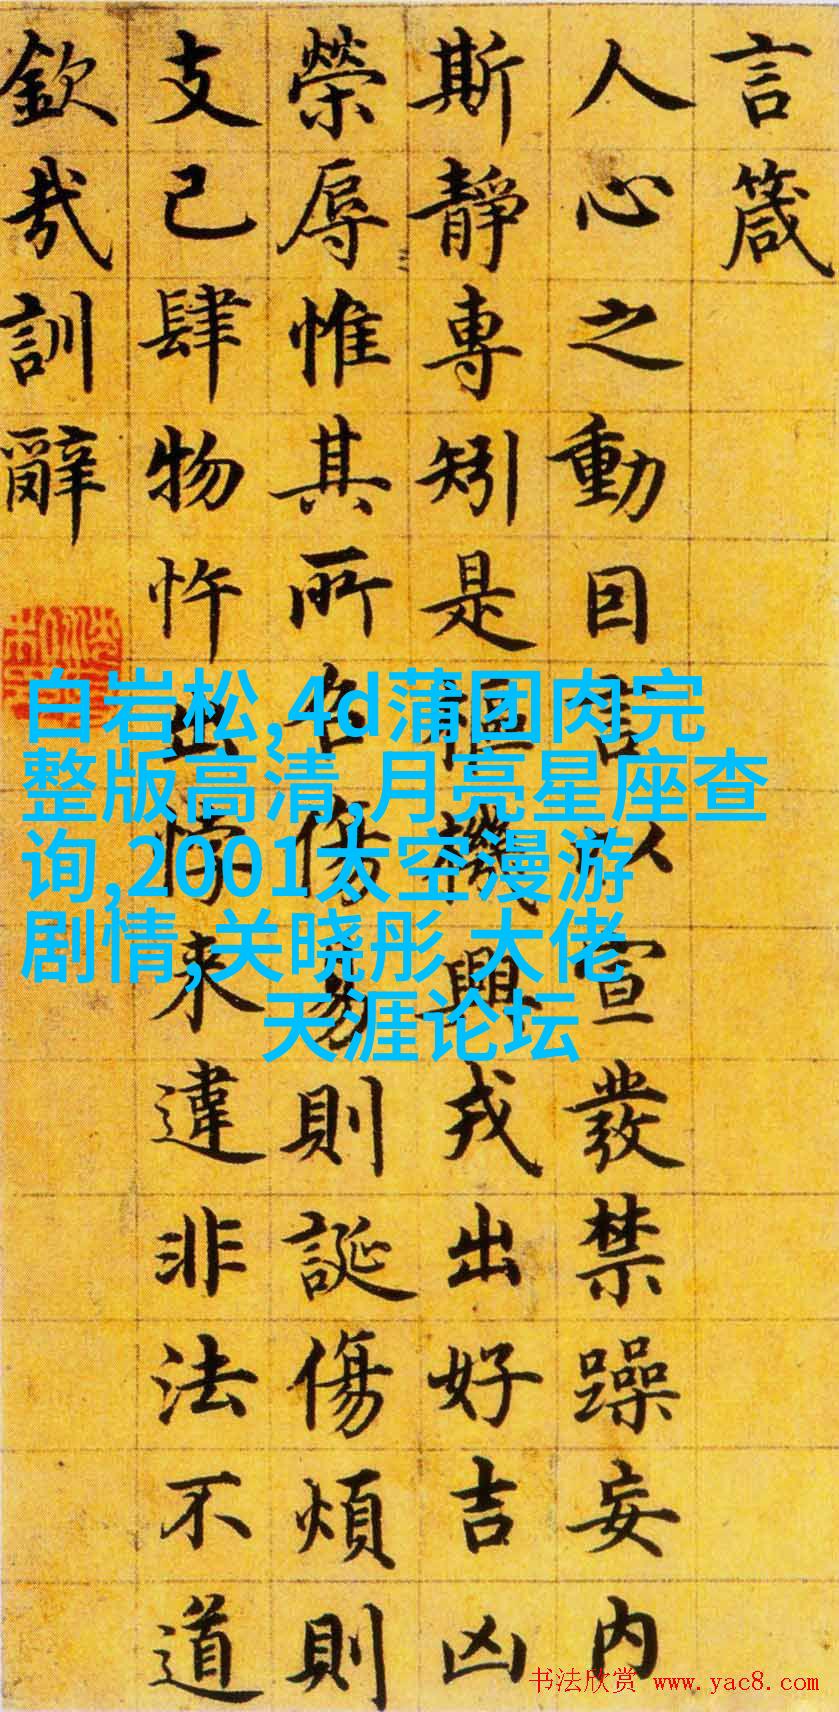 言箴
人心之動因言以宣發禁躁妄內
斯靜專矧是樞機興戎出好吉凶
榮辱惟其所召傷易則誕傷煩則
支己肆物忤出悖來違非法不道
欽哉訓辭
白岩松,4d蒲团肉完
整版高清,月亮星座查
询,2001太空漫游
剧情,关晓彤,大佬
天涯论坛
书法欣赏 www.yac8.com